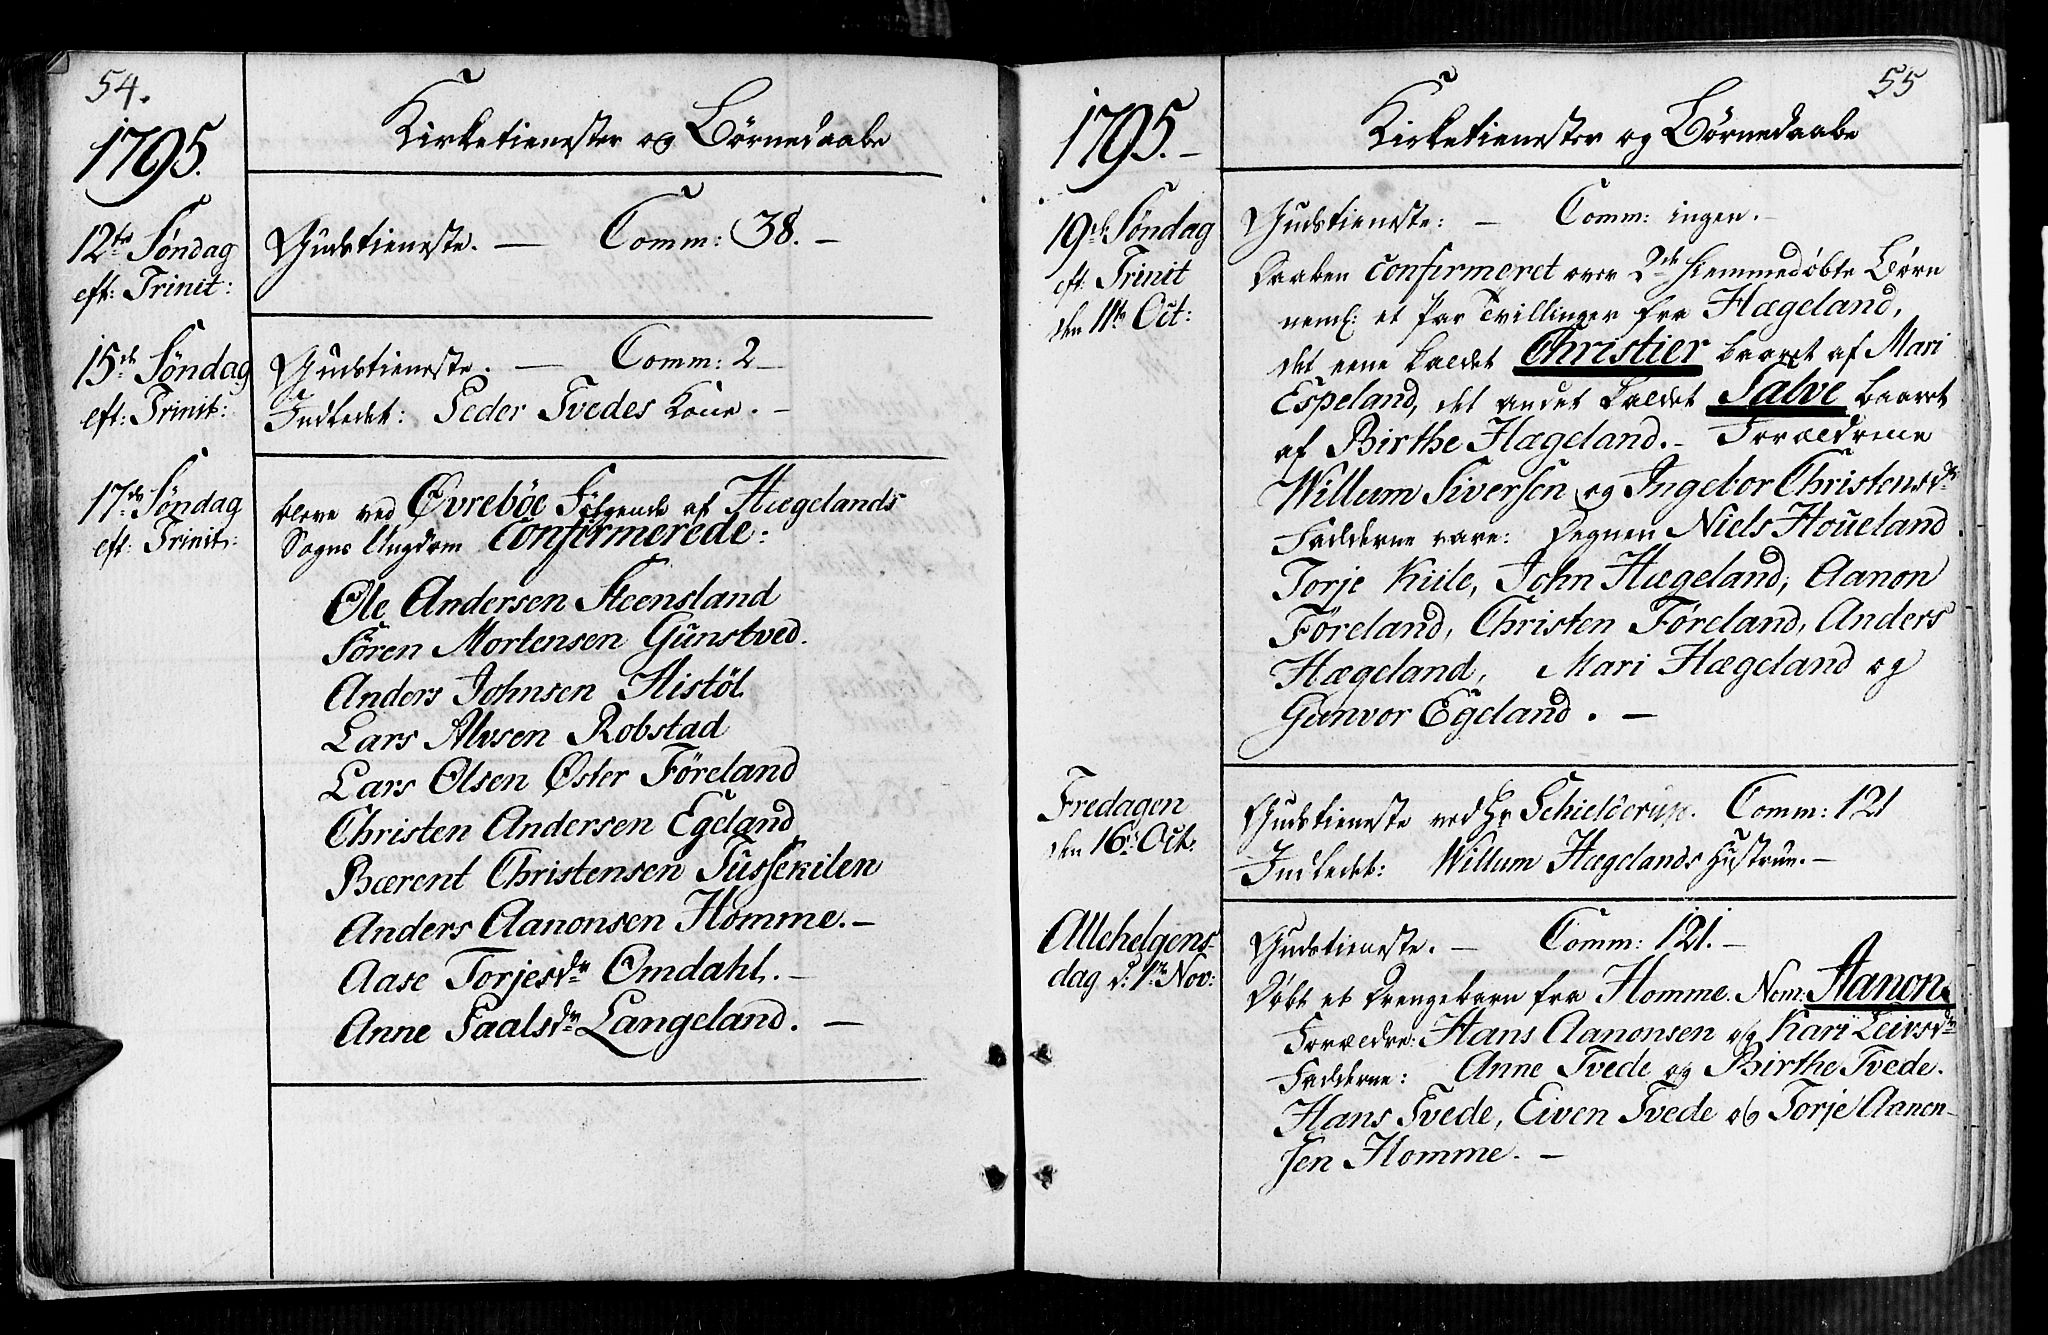 54.
1795.
Kirketienester og Börnedaabe
12te Søndag
eft: Trinit:
Gudstieneste. — Comm: 38. —
15de Søndag
eft: Trinit:
Gudstieneste. — Comm: 2 —
Indledet: Peder Tvedes Kone. —
17de Søndag
eft: Trinit:
bleve ved Øvrebøe følgende af Hægelands
Sogns Ungdom Confirmerede:
Ole Andersen Steensland
Sören Mortensen Gunstved.
Anders Johnsen Histöl
Lars Alvsen Robstad
Lars Olsen Øster Föreland
Christen Andersen Egeland
Bærent Christensen Tussekilen
Anders Aanonsen Homme. —
Aase Torjesdr Omdahl. —
Anne Saalsdr Langeland. —
55
1795. —
Kirketienester og Börnedaabe
19de Søndag
eft: Trinit
den 11te Oct:
Gudstieneste: — Comm: ingen. —
Daaben confirmeret over 2de hiemmedöbte Börn
neml: et Par Tvillinger fra Hægeland,
det eene kaldet Christier baaret af Mari
Espeland, det andet kaldet Salve baaret
af Birthe Hægeland. — Forældrene
Willum Siversen og Ingebor Christensdr
Fadderne vare: Degnen Niels Houeland
Torje Kiile, John Hægeland, Aanon
Føreland, Christen Føreland, Anders
Hægeland, Mari Hægeland og
Gunvor Egeland. —
Fredagen
den 16de Oct.
Gudstieneste ved Hr Schielderup. Comm: 121
Indledet: Willum Hægelands Hustrue. —
Allehelgens-
dag d: 1te Nov:
Gudstieneste. — Comm: 121. —
Döbt et Drengebarn fra Homme. Nom: Aanon.
Forældre: Hans Aanonsen og Kari Leivsdr
Fadderne: Anne Tvede og Birthe Tvede.
Hans Tvede, Eiven Tvede og Torje Aanon-
sen Homme. —